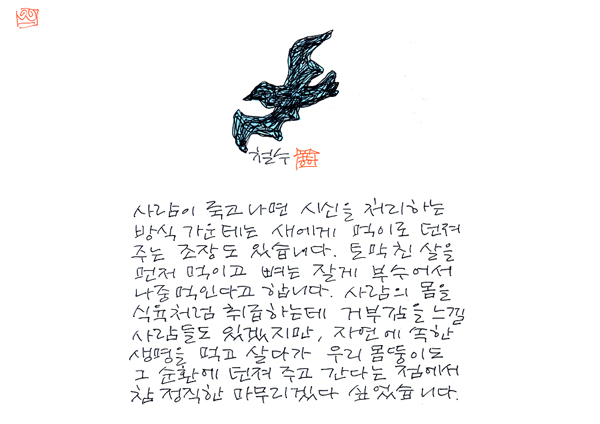 철수
사람이 죽고 나면 시신을 처리하는
방식 가운데는 새에게 먹이로 던져
주는 조장도 있습니다. 토막친 살을
먼저 먹이고 뼈는 잘게 부수어서
나중 먹인다고 합니다. 사람의 몸을
식육처럼 취급하는데 거부감을 느낄
사람들도 있겠지만, 자연에 속한
생명을 먹고 살다가 우리 몸뚱이도
그 순환에 던져 주고 간다는 점에서
참 정직한 마무리겠다 싶었습니다.